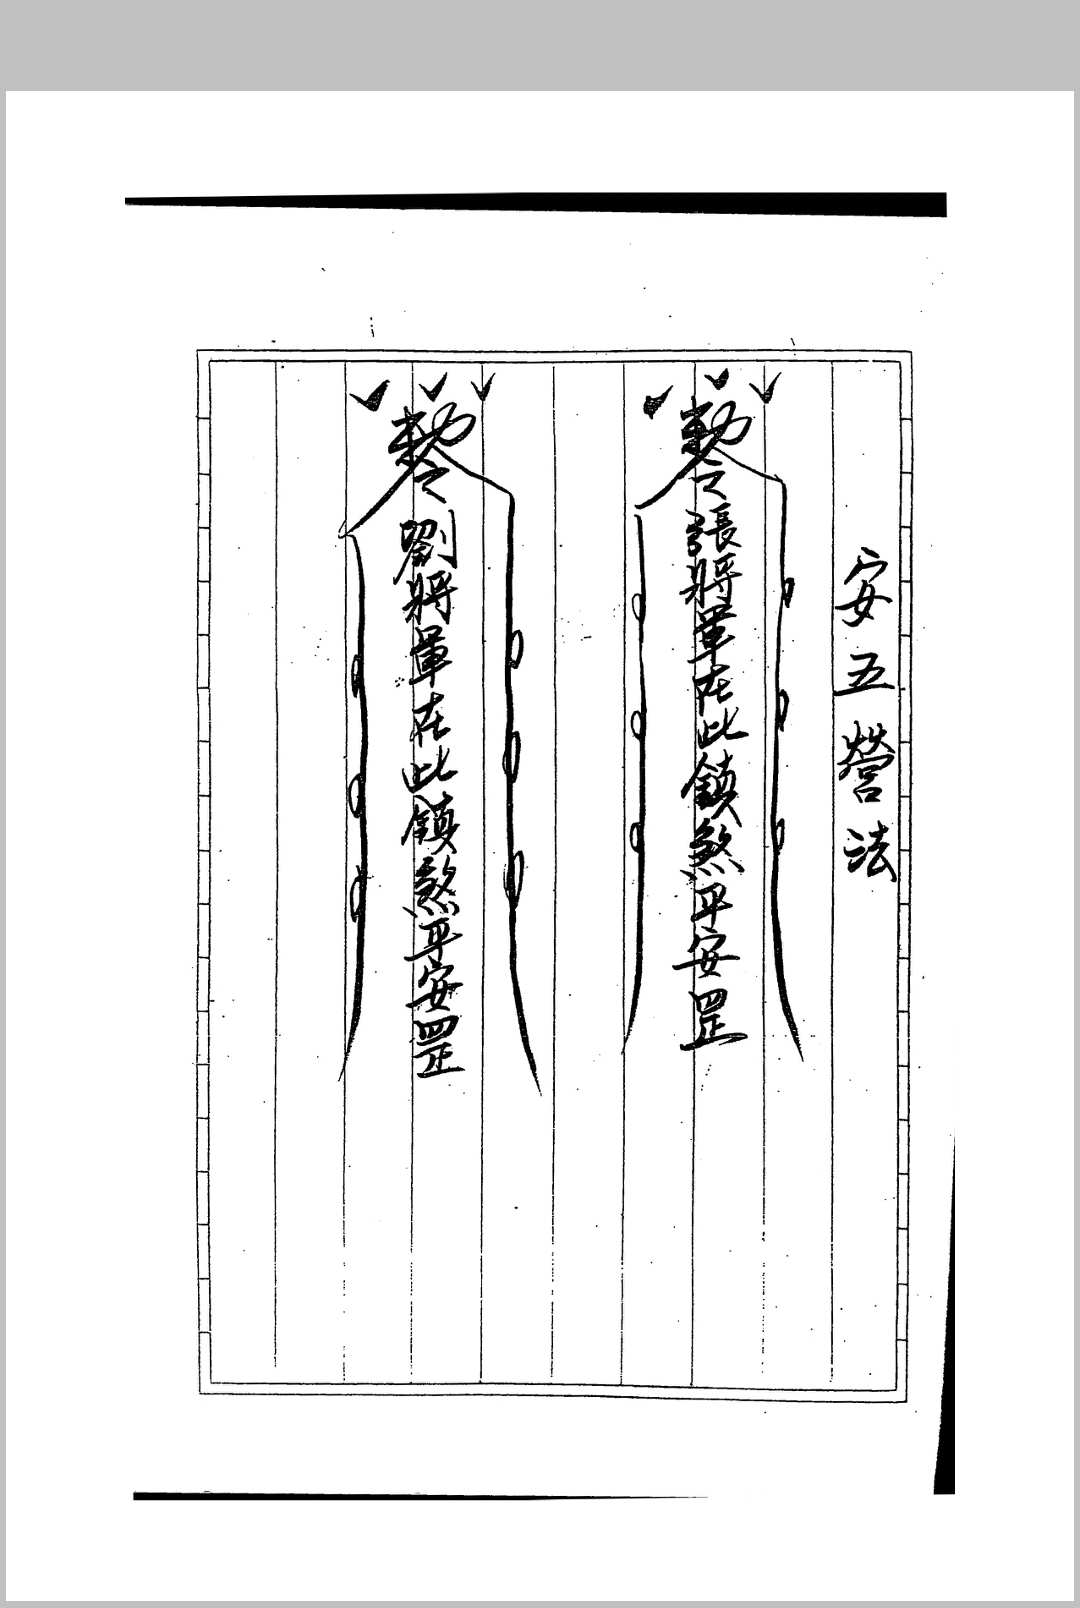 安五營法
勅令張將軍在此鎮煞平安罡
勅令劉將軍在此鎮煞平安罡